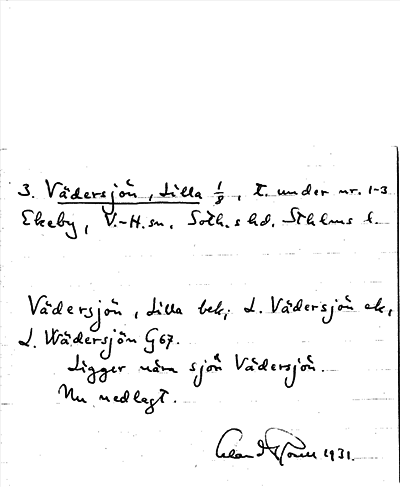 3. Vädersjön, Lilla 1/8, t. under nr. 1-3
Ekeby, V.-H. sn. Soth.s hd. Sthlms l.
Vädersjön, Lilla bek; L. Vädersjön ek,
L. Wädersjön G67.
Ligger nära sjön Vädersjön.
Nu nedlagt.
1931.